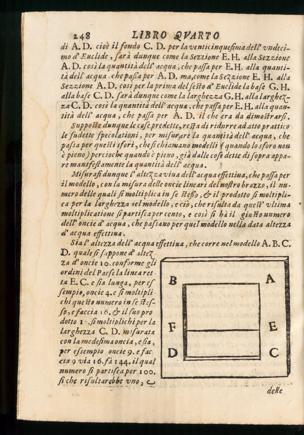 248 LIBRO QVARTO
di A.D. cioè il fondo C.D. per la venticinquesima dell'undecimo
d'Euclide, sarà dunque come la Sezzione E.H. alla Sezzione
A.D. così la quantità dell'acqua, che passa per E.H. alla quantità
dell'acqua che passa per A.D. ma, come la Sezzione E.H. alla
Sezzione A.D. così per la prima del sesto d'Euclide la base G.H.
alla base C.D. sarà dunque come la larghezza G.H. alla larghezza
C.D. così la quantità dell'acqua, che passa per E.H. alla quantità
dell'acqua, che passa per A.D. il che era da dimostrarsi.
Supposte dunque le cose predette, resta di ridurre ad atto prattico
le sudette speculationi, per misurare la quantità dell'acqua, che
passa per questi fori, che si chiamano modelli (quando lo foro non
è pieno) perciòche quando è pieno, già dalle cose dette di sopra appare
manifestamente la quantità dell'acqua.
Misurasi dunque l'altezza viva dell'acqua effettiva, che passa per
il modello, con la misura delle oncie lineari del nostro brazzo, il numero
delle quali si moltiplica in se stesso, & il prodotto si moltiplica
per la larghezza nel modello, e ciò, che risulta da quest'ultima
moltiplicatione si partisca per cento, e così si hà il giusto numero
dell'oncie d'acqua, che passano per quel modello nella data altezza
d'acqua effettiva.
Sia l'altezza dell'acqua effettiva, che corre nel modello A.B.C.
D. quale si suppone d'altezza
d'oncie 10. conforme gli
ordini del Paese la linea retta
E.C. e sia lunga, per essempio,
oncie 4. e si moltiplichi
questo numero in se stesso,
e faccia 16. & il suo prodotto
si moltiplichi per la
larghezza C.D. misurata
con la medesima oncia, e sia,
per essempio oncie 9. e faccia
9 via 16. fà 144. il qual
numero si partisca per 100.
si che risultarebbe uno,
B A
F E
D C
delle